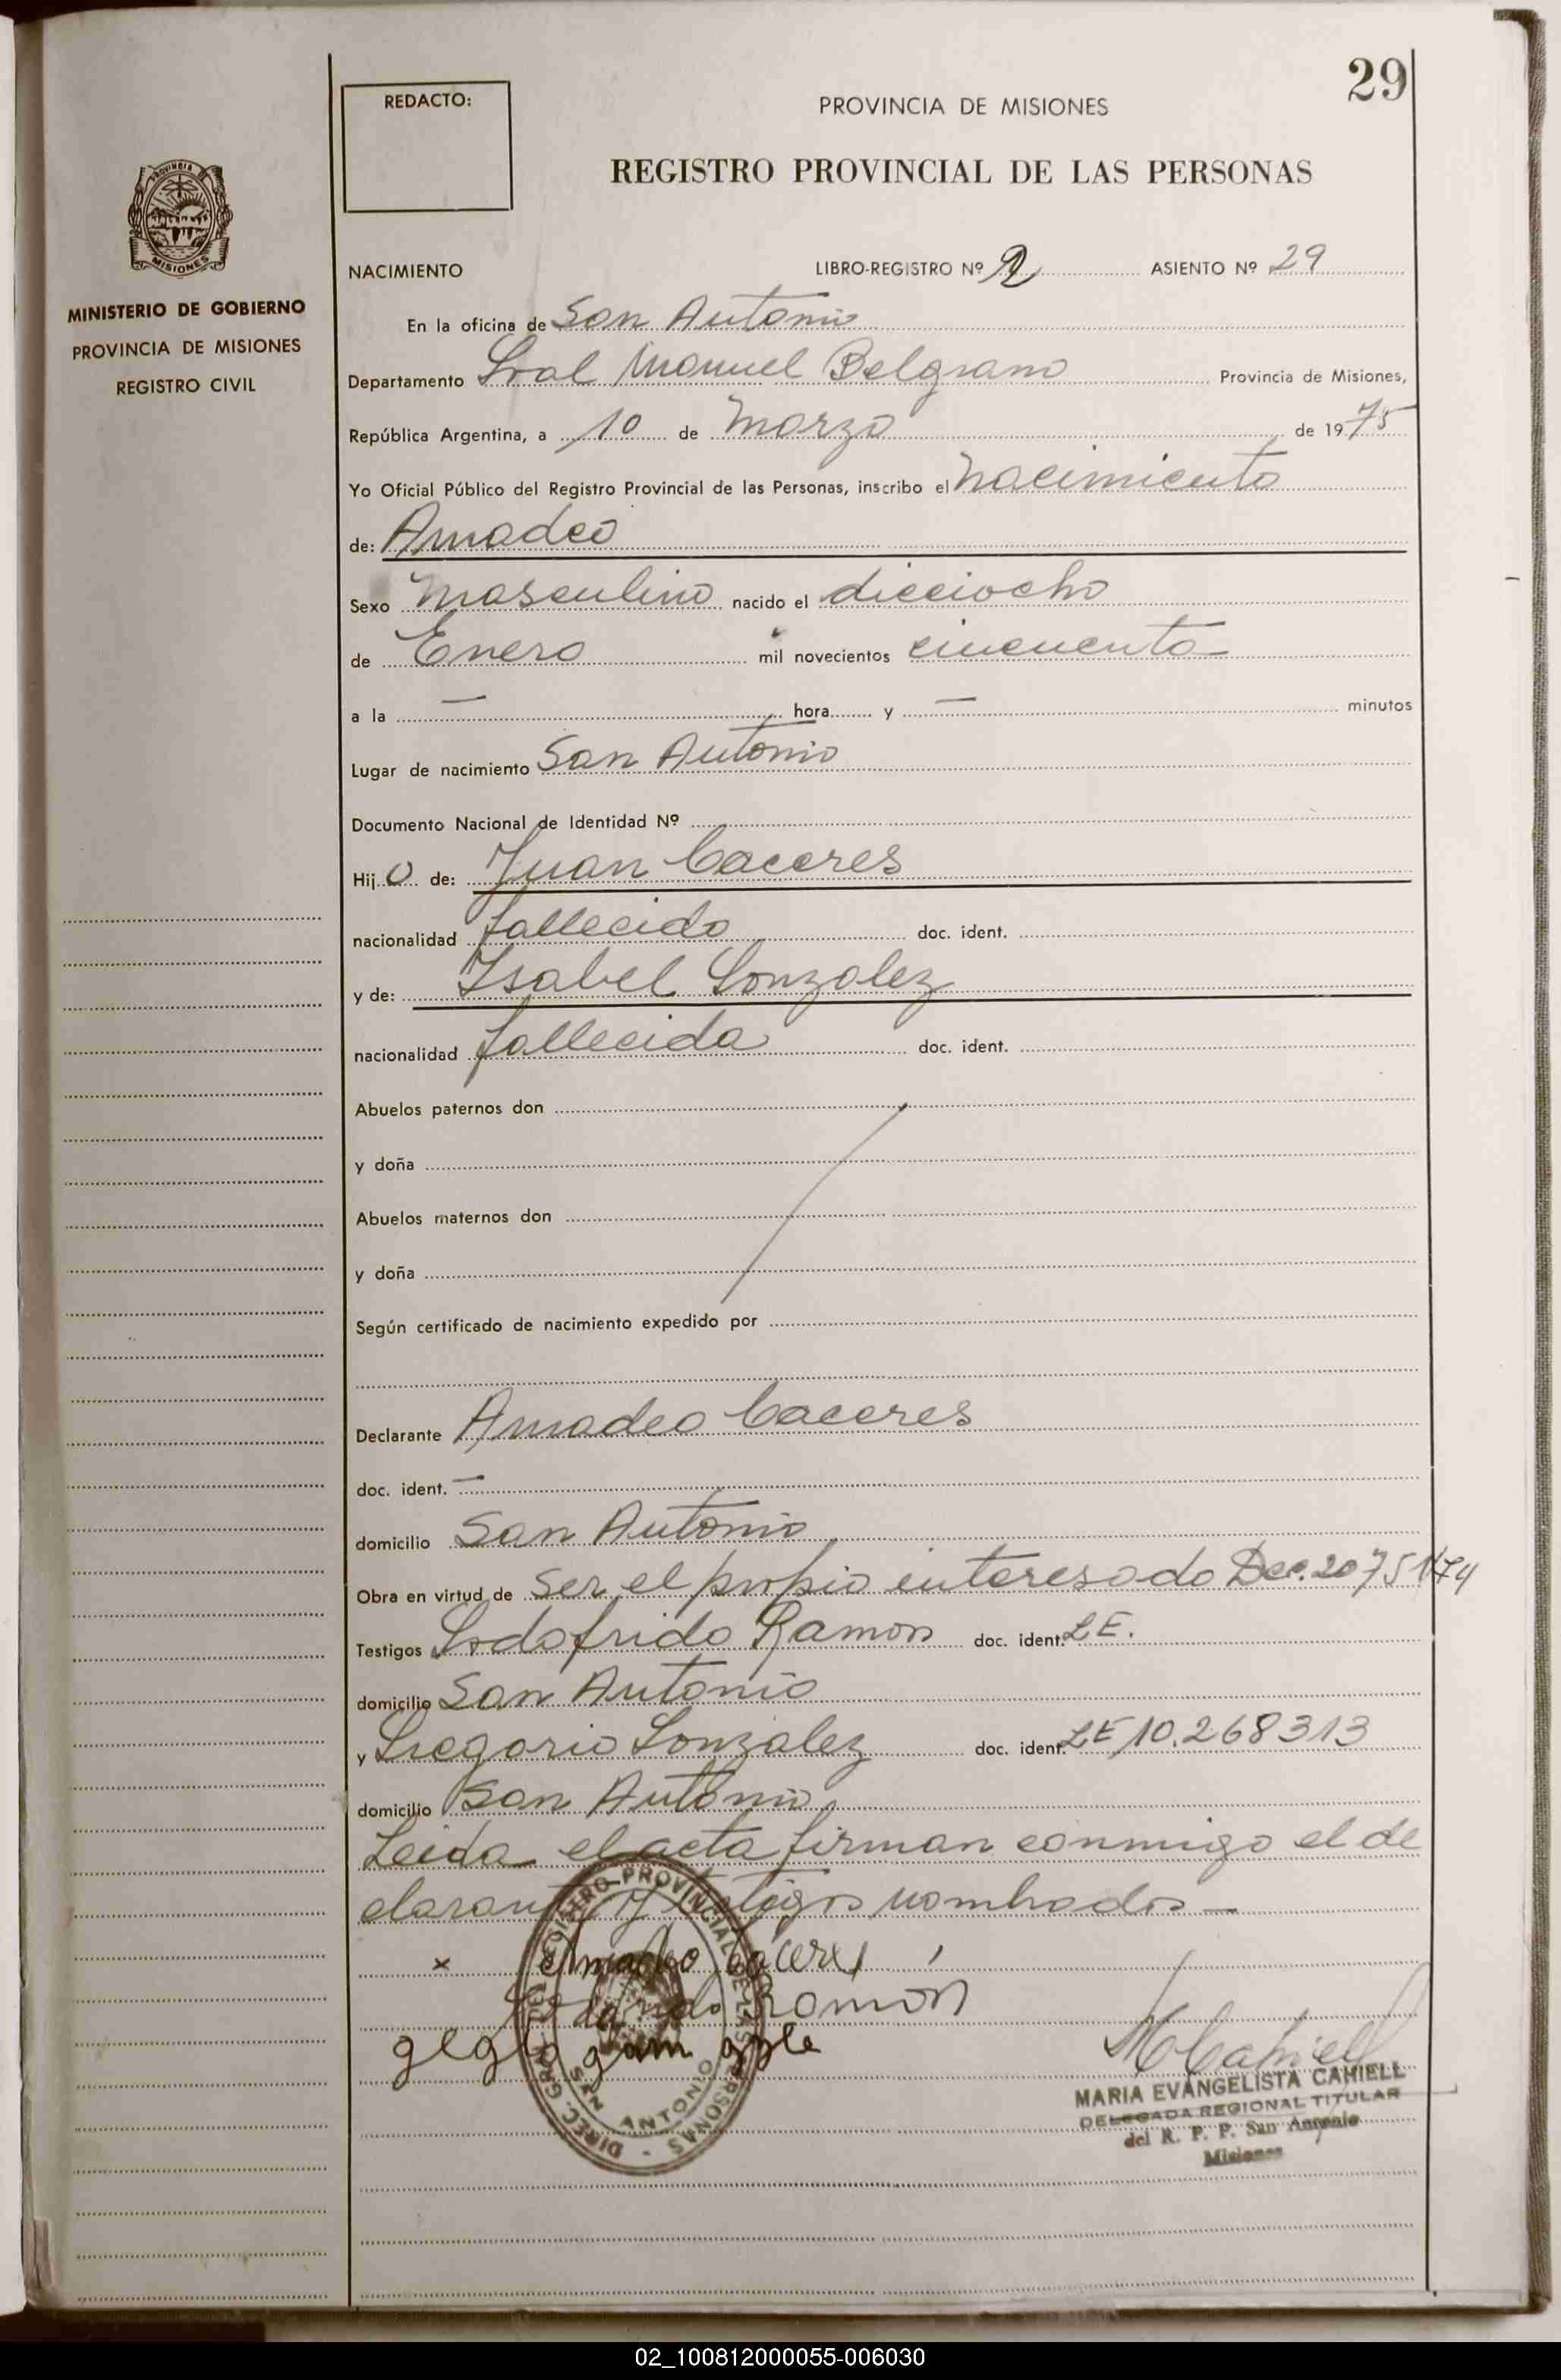 29
REDACTO:
PROVINCIA DE MISIONES
REGISTRO PROVINCIAL DE LAS PERSONAS
PROVINCIA DE
MISIONES
MINISTERIO DE GOBIERNO
PROVINCIA DE MISIONES
REGISTRO CIVIL
NACIMIENTO LIBRO-REGISTRO Nº 2 ASIENTO Nº 29
En la oficina de San Antonio
Departamento Gral Manuel Belgrano Provincia de Misiones,
República Argentina, a 10 de Marzo de 1975
Yo Oficial Público del Registro Provincial de las Personas, inscribo el Nacimiento
de: Amadeo
Sexo Masculino nacido el dieciocho
de Enero mil novecientos cincuenta
a la — hora y — minutos
Lugar de nacimiento San Antonio
Documento Nacional de Identidad Nº
Hijo de: Juan Caceres
nacionalidad fallecido doc. ident.
y de: Isabel Gonzalez
nacionalidad fallecida doc. ident.
Abuelos paternos don
y doña
Abuelos maternos don
y doña
Según certificado de nacimiento expedido por
Declarante Amadeo Caceres
doc. ident. —
domicilio San Antonio
Obra en virtud de ser el propio interesado Dec. 20751/74
Testigos Godofrido Ramon doc. ident. LE.
domicilio San Antonio
y Gregorio Gonzalez doc. ident. LE 10.268313
domicilio San Antonio
Leida el acta firman conmigo el de
clarante y testigos nombrados —
x Amadeo Caceres
Ramon
DIREC. GRAL. DEL REGISTRO PROVINCIAL DE LAS PERSONAS
SAN ANTONIO
MCahiell
MARIA EVANGELISTA CAHIELL
DELEGADA REGIONAL TITULAR
del R. P. P. San Antonio
Misiones
02_100812000055-006030